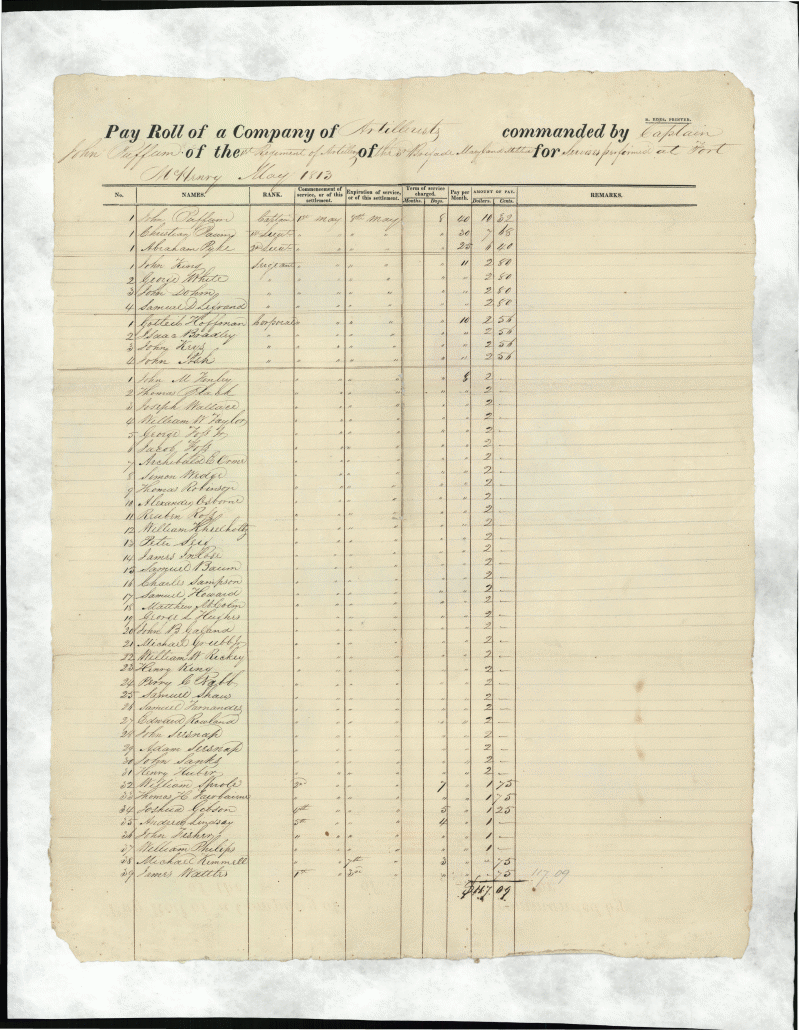 G. KEEN, PRINTER.
Pay Roll of a Company of Artillerists commanded by Captain
John of the 1st Regiment of Artillery of the 3d Brigade Maryland Militia for Services performed at Fort
McHenry May 1813
No. NAMES. RANK. Commencement of service, or of this settlement. Expiration of service, or of this settlement. Term of service charged. Months. Days. Pay per Month. AMOUNT OF PAY. Dollars. Cents. REMARKS.
1 John Captain 1st May 8th May 8 40 10 32
1 Christian 1st Lieut " " " " " 30 7 68
1 Abraham Pyke 2d Lieut " " " " " 25 6 40
1 John King Sergeant " " " " " 11 2 80
2 George White " " " " " " " 2 80
3 John " " " " " " " 2 80
4 Samuel D Legrand " " " " " " " 2 80
1 Gotlieb Hoffman Corporal " " " " " 10 2 56
2 Isaac Bradley " " " " " " " 2 56
3 John Keys " " " " " " " 2 56
4 John " " " " " " " 2 56
1 John M Finley " " " " " 8 2 —
2 Thomas " " " " " " 2 —
3 Joseph Wallace " " " " " " 2 —
4 William W Taylor " " " " " " 2 —
5 George Foss Jr " " " " " " 2 —
6 Jacob Foss " " " " " " 2 —
7 Archibald E Orme " " " " " " 2 —
8 Simon Wedge " " " " " " 2 —
9 Thomas Robinson " " " " " " 2 —
10 Alexander Osborne " " " " " " 2 —
11 Reuben Ross " " " " " " 2 —
12 William " " " " " " 2 —
13 Peter " " " " " " 2 —
14 James " " " " " " 2 —
15 Samuel Baum " " " " " " 2 —
16 Charles Sampson " " " " " " 2 —
17 Samuel Howard " " " " " " 2 —
18 Matthew McColm " " " " " " 2 —
19 George L Hughes " " " " " " 2 —
20 John B Garland " " " " " " 2 —
21 Michael Grubb Jr " " " " " " 2 —
22 William W Richey " " " " " " 2 —
23 Henry King " " " " " " 2 —
24 Perry G " " " " " " 2 —
25 Samuel Shaw " " " " " " 2 —
26 Samuel Fernandes " " " " " " 2 —
27 Edward Rowland " " " " " " 2 —
28 John Seesnap " " " " " " 2 —
29 Adam Seesnap " " " " " " 2 —
30 John Sanks " " " " " " 2 —
31 Henry Huber " " " " " " 2 —
32 William Sprole 2d " " " 7 " 1 75
33 Thomas H Fairbairne " " " " " " 1 75
34 Joshua Gibson 4th " " " 5 " 1 25
35 Andrew Lindsay 5th " " " 4 " 1 —
36 John " " " " " " 1 —
37 William Philips " " " " " " 1 —
38 Michael Kimmell " " 7th " 3 " " 75
39 James Wattles 1st " 3d " " " " 75 117.09
$117 09